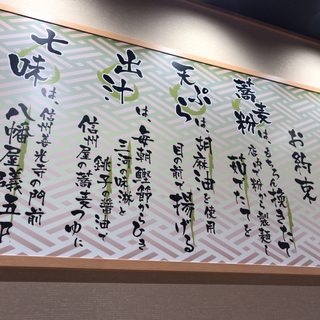 お約束
蕎麦粉は、もちろん挽きたて
店内で粉から製麺し
茹でたてを
天ぷらは、胡麻油を使用
目の前で揚げる
出汁は、毎朝鰹節からひき
三河の味淋と
銚子の醤油で
信州屋の蕎麦つゆに
七味は、信州善光寺の門前
八幡屋礒五郎